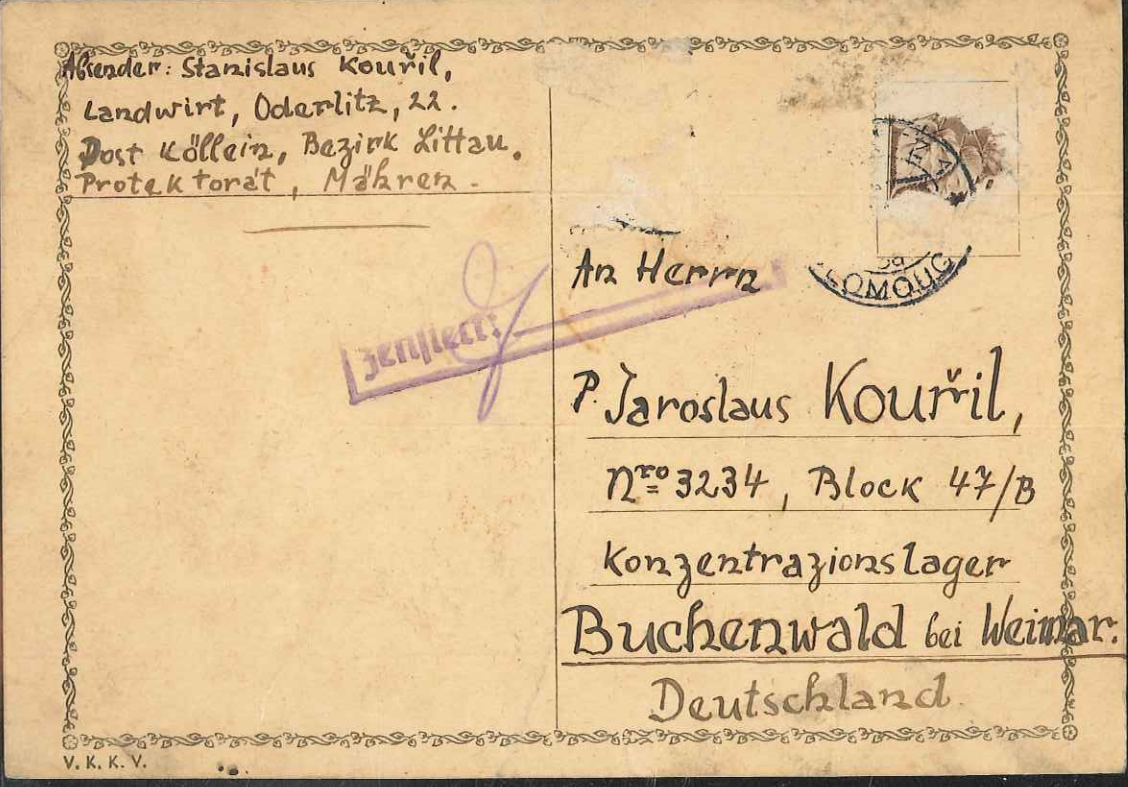 Absender: Stanislaus Kouřil,
Landwirt, Oderlitz, 22.
Post Köllein, Bezirk Littau.
Protektorat, Mähren.
OLOMOUC
An Herrn
zensiert:
P. Jaroslaus Kouřil,
Nro 3234, Block 47/B
Konzentrazionslager
Buchenwald bei Weimar.
Deutschland
V. K. K. V.